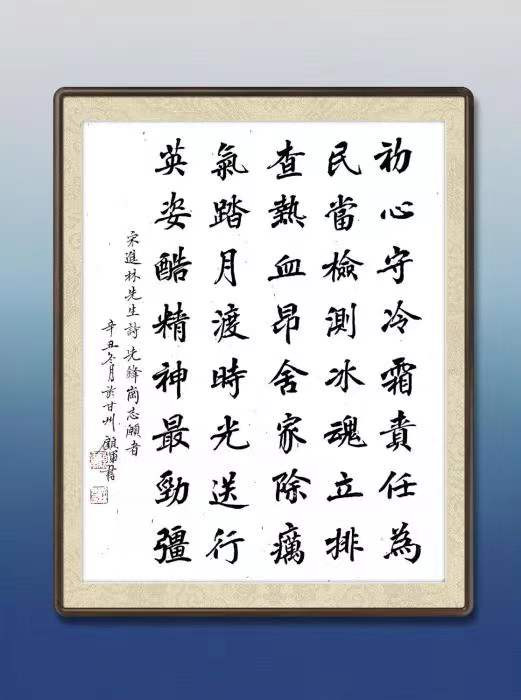 初心守冷霜責任為
民當檢測冰魂立排
查熱血昂舍家除癘
氣踏月渡時光送行
英姿酷精神最勁彊
宋進林先生詩先鋒崗志願者
辛丑冬月於甘州